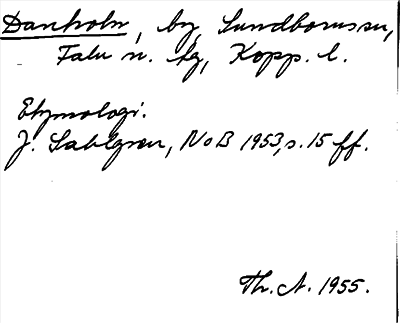 Danholn, by, Sundbornssn,
Falu n. tg, Kopp. l.
Etymologi.
J. Sahlgren, NoB 1953, s. 15 ff.
Th. A. 1955.